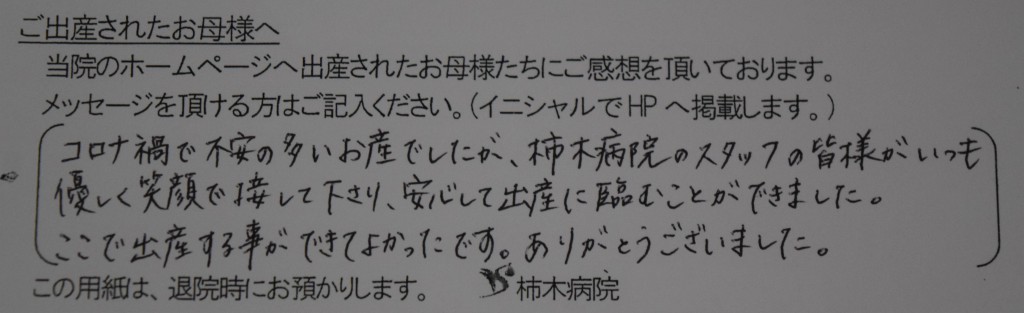 ご出産されたお母様へ
当院のホームページへ出産されたお母様たちにご感想を頂いております。
メッセージを頂ける方はご記入ください。(イニシャルでHPへ掲載します。)
コロナ禍で不安の多いお産でしたが、柿木病院のスタッフの皆様がいつも
優しく笑顔で接して下さり、安心して出産に臨むことができました。
ここで出産する事ができてよかったです。ありがとうございました。
この用紙は、退院時にお預かりします。 柿木病院